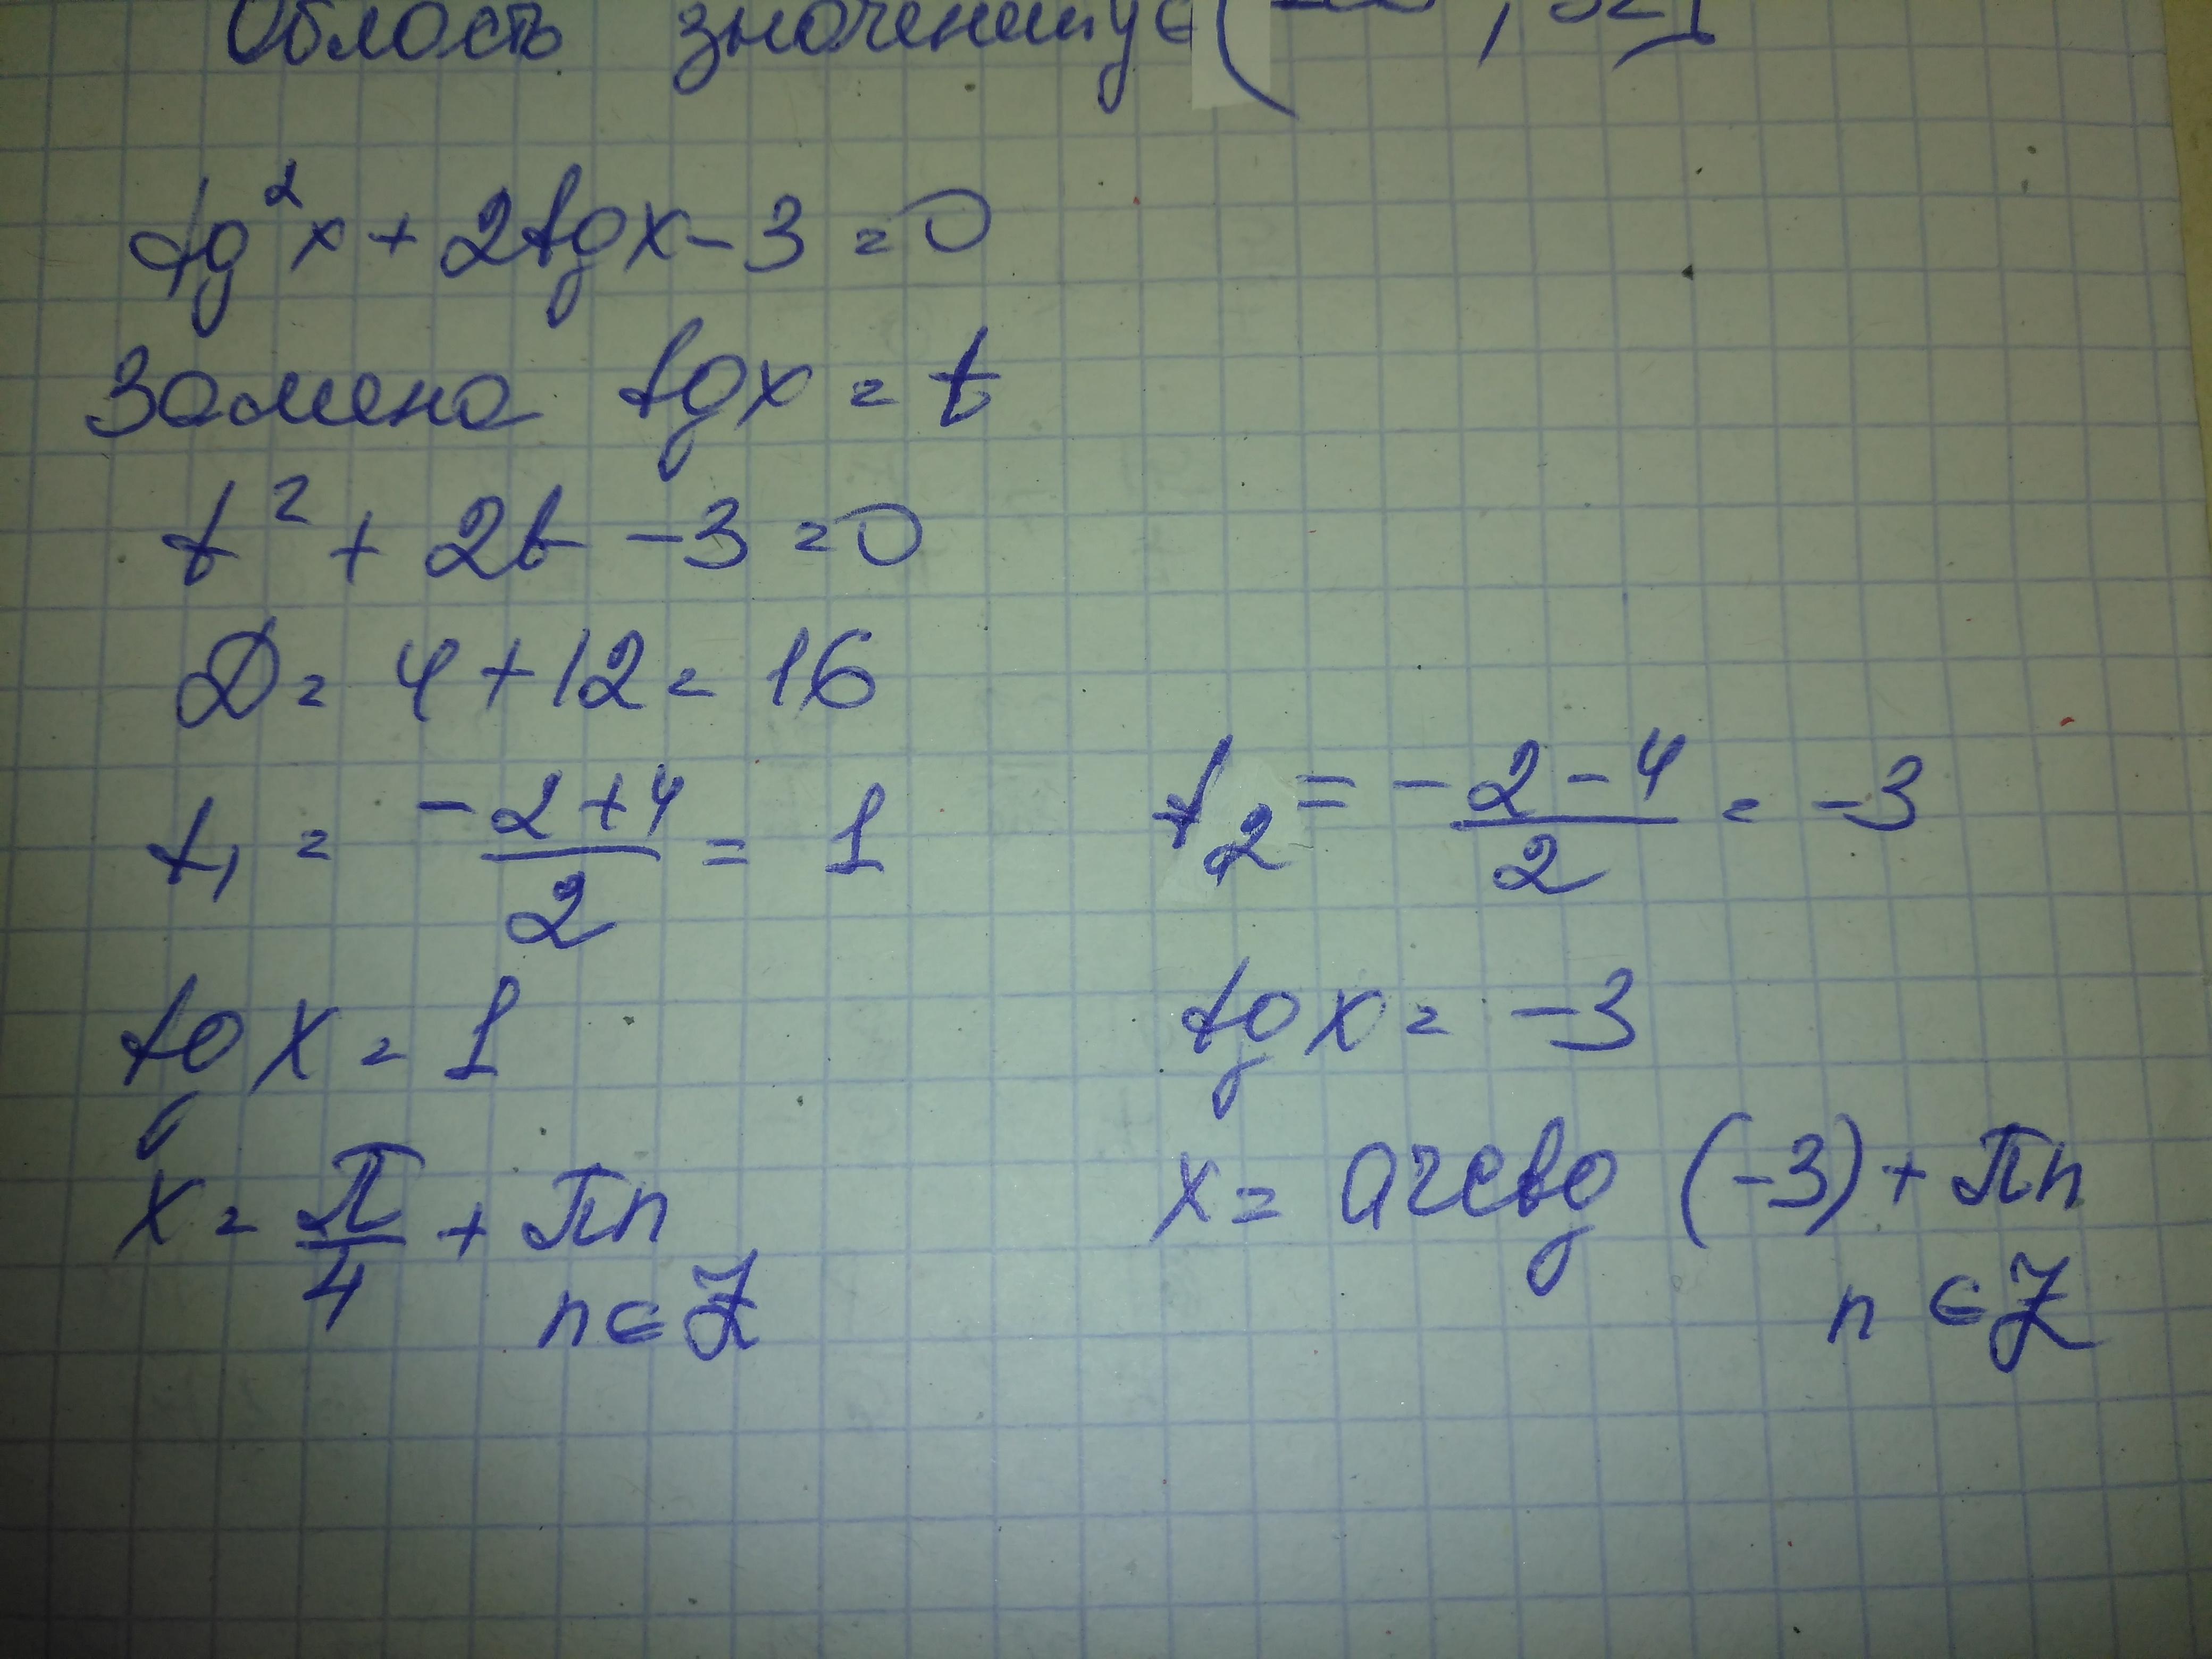 Область значений y ∈ (
tg²x + 2tgx - 3 = 0
Замена tgx = t
t² + 2t - 3 = 0
D = 4 + 12 = 16
t₁ = -2+4/2 = 1
t₂ = -2-4/2 = -3
tgx = 1
tgx = -3
x = π/4 + πn
n ∈ Z
x = arcctg (-3) + πn
n ∈ Z